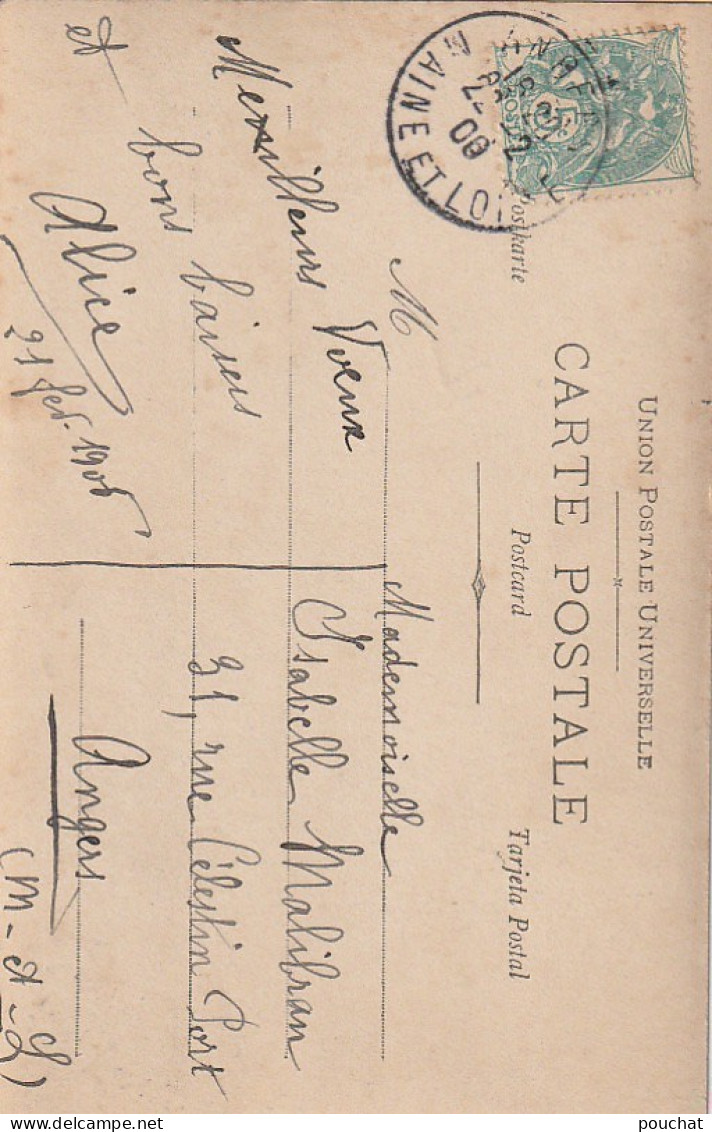 UNION POSTALE UNIVERSELLE
CARTE POSTALE
Postkarte Postcard Tarjeta Postal
MAINE ET LOIRE
M
Meilleurs Voeux
et bons baisers
Alice
21 fev. 1906
Mademoiselle
Isabelle Malibran
31, rue Célestin Port
Angers
(M-et-L)
delcampe.net
pouchat